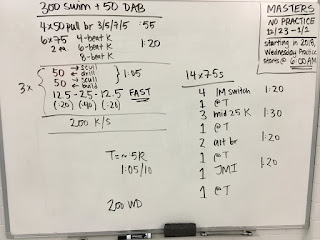 300 swim + 50 DAB
4x50 pull br 3/5/7/5 :55
6x75 4-beat K
2 ea 6-beat K 1:20
8-beat K
3x
50 → scull
→ drill 1:05
50 → scull
→ build
12.5 - 25 - 12.5 FAST
(:20) (:40) (:20)
200 K/S
T = ~ 5R
1:05/10
200 WD
14x75s
4 IM switch 1:20
1 @T
3 mid 25 K 1:30
1 @T
2 alt br 1:20
1 @T
1 JMI 1:20
1 @T
MASTERS
NO PRACTICE
12/23 - 1/2
starting in 2018,
Wednesday Practice
starts @ 6:00AM